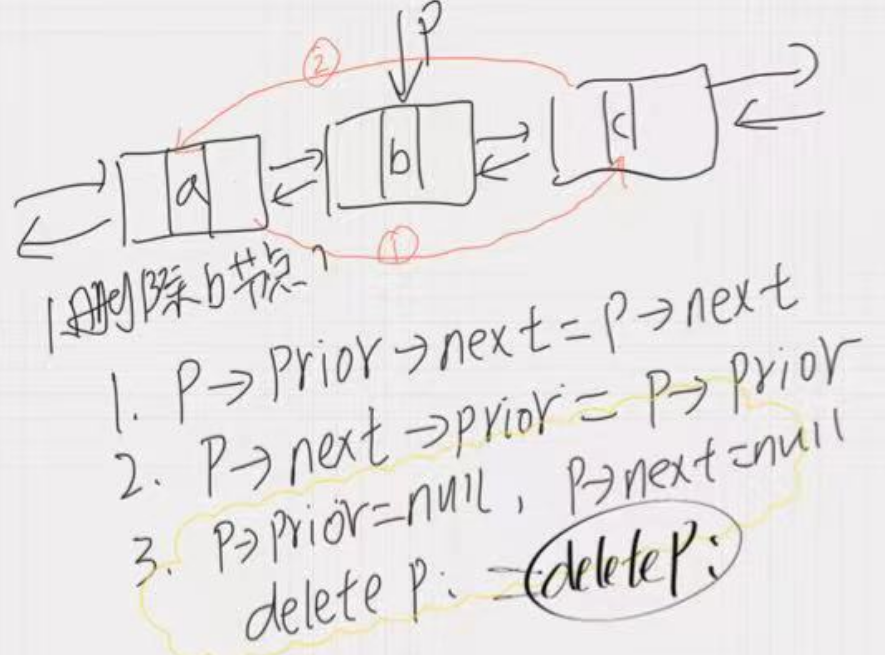 ② P
a b c
①
删除b节点
1. P→Prior→next=P→next
2. P→next→prior=P→Prior
3. P→prior=null, P→next=null
delete p; =deletep;